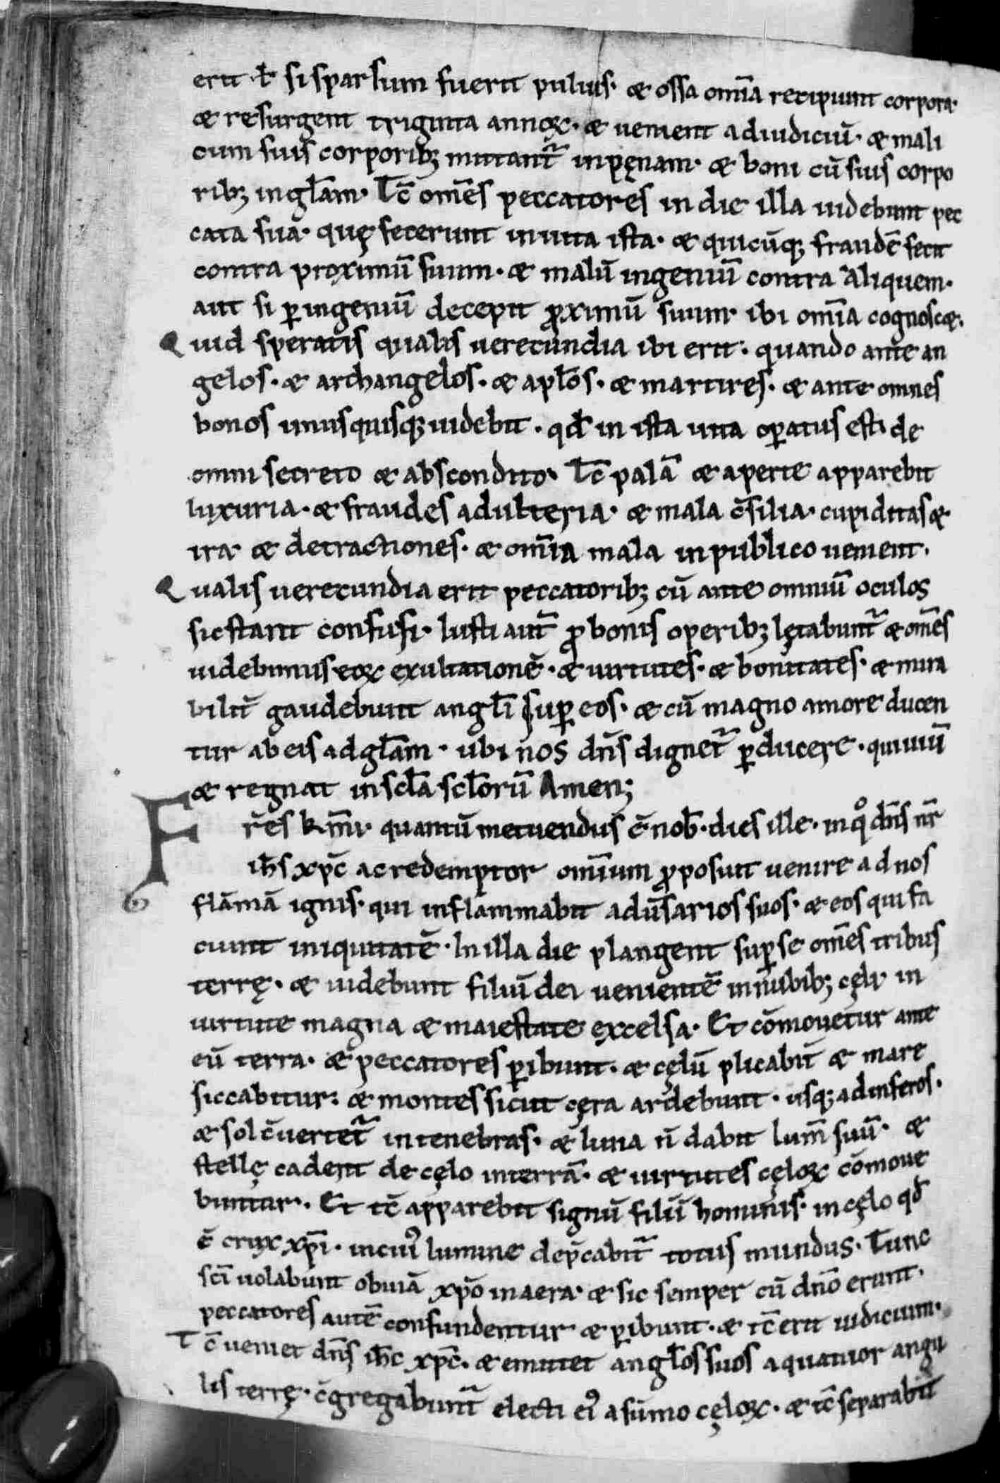 erit. ł si sparsum fuerit puluis. & ossa om̄ia recipiunt corpora.
& resurgent triginta annoꝝ. & uenient ad iudiciū. & mali
cum suis corporibꝫ mittant᷑ in pęnam. & boni cū suis corpo
ribꝫ in głam. Tc̄ om̄es peccatores in die illa uidebunt pec
cata sua. quę fecerunt in uita ista. & quicūqꝫ fraudē fecit
contra proximū suum. & malū ingeniū contra aliquem.
aut si ꝑ ingeniū decepit ꝓximū suum. ibi om̄ia cognosc&.
Quid speratis qualis uerecundia ibi erit. quando ante an
gelos. & archangelos. & apłos. & martires. & ante omnes
bonos unusquisqꝫ uidebit. qđ in ista uita oꝑatus est. de
omni secreto & abscondito. Tc̄ palā & aperte apparebit
luxuria. & fraudes adulteria. & mala c̄silia. cupiditas &
ira & detractiones. & om̄ia mala in publico uenient.
Qualis uerecundia erit peccatoribꝫ cū ante omniū oculos
sic stant confusi. Iusti aut̄ ꝓ bonis operibꝫ lętabunt᷑ & om̄es
uidebimus eoꝝ exultationē. & uirtutes. & bonitates. & mira
bilit̄ gaudebunt angłi suꝑ eos. & cū magno amore ducen
tur ab eis ad głam. ubi nos dn̄s dignet᷑ ꝑducere. qui uiu̅
& regnat in scła scłorū Amen;
Fr̄es k̄mi. quantū metuendus ē nob̄. dies ille. in qͦ dn̄s nr̄
ih̄s xp̄c ac redemptor omnium ꝓposuit uenire ad nos
flāmā ignis. qui inflammabit adūsarios suos. & eos qui fa
ciunt iniquitatē. In illa die plangent suꝑ se om̄es tribus
terrę. & uidebunt filiū dei uenientē in nubibꝫ cęli in
uirtute magna & maiestate excelsa. Et cōmouetur ante
eū terra. & peccatores ꝑibunt. & cęlū plicabit̄ & mare
siccabitur: & montes sicut cęra ardebunt. usqꝫ ad inferos.
& sol c̄uertet᷑ in tenebras. & luna n̄ dabit lum̄ suū. &
stellę cadent de cęlo in terrā. & uirtutes cęloꝝ cōmoue
buntur. Et tc̄ apparebit signū filii hominis. in cęlo qđ
ē crux xp̄i. in cuiꝰ lumine dep̄cabit᷑ totus mundus. Tunc
sc̄i uolabunt obuiā xp̄o in aera. & sic semper cū dn̄o erunt.
peccatores autē confundentur & ꝑibunt. & tc̄ erit iudicium.
Tc̄ ueniet dn̄s ih̄c xp̄c. & emittet angłos suos a quatuor angu
lis terrę. c̄gregabunt᷑ electi eiꝰ a sūmo cęloꝝ. & tc̄ separabit